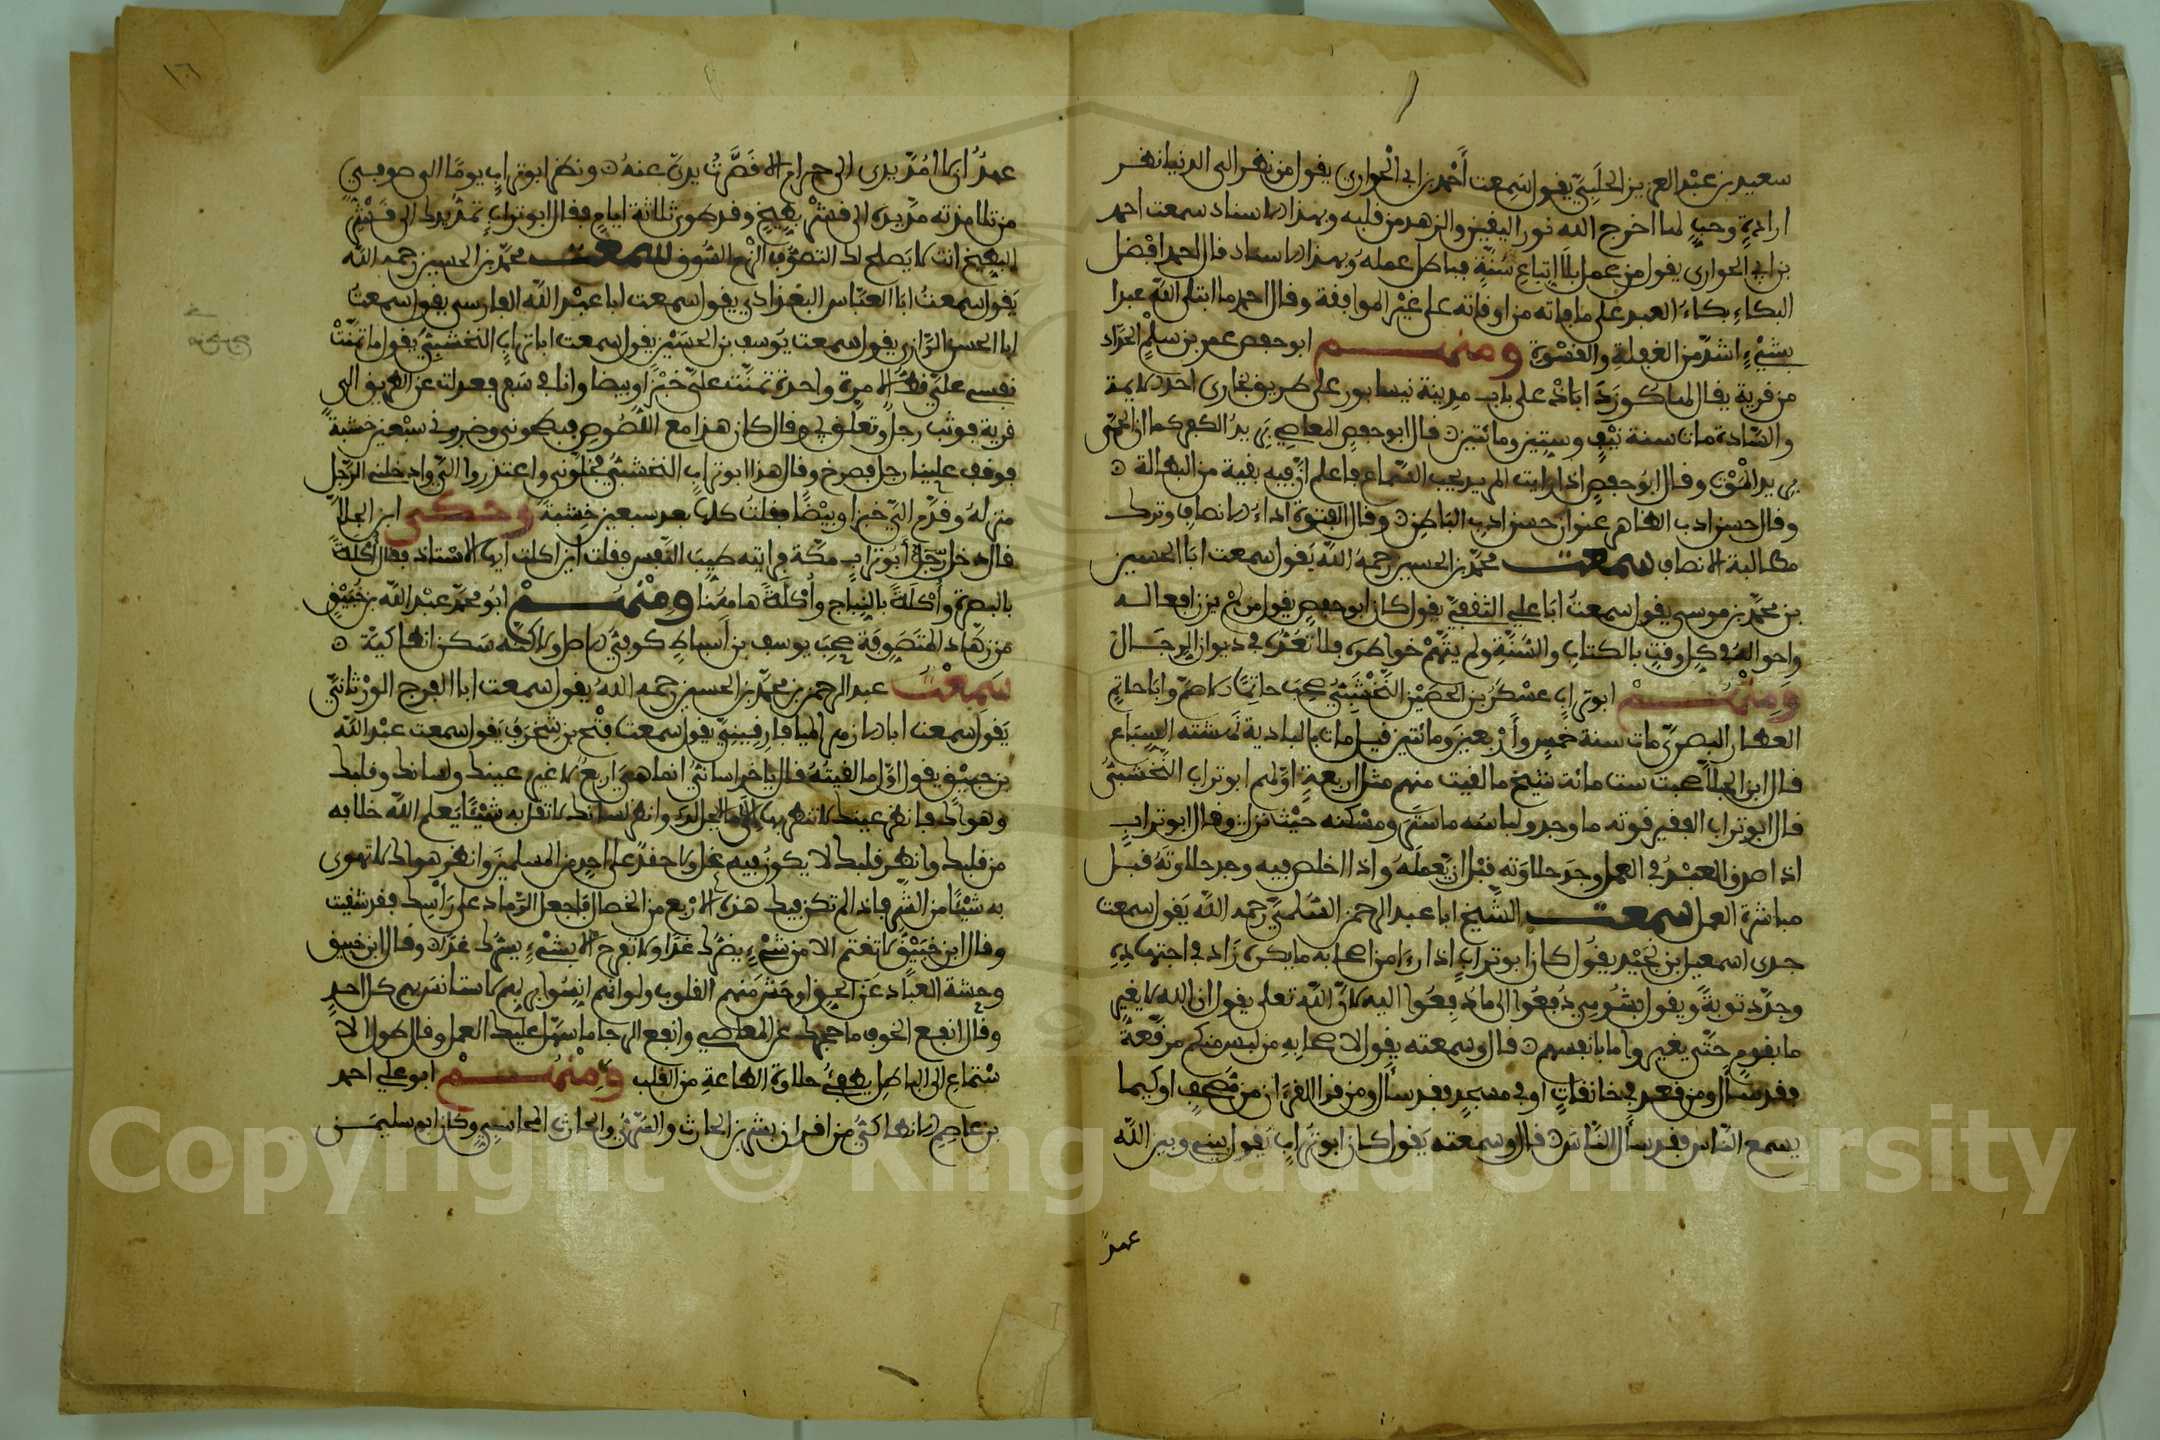 سعيد بن عبد العزيز الحلبي يقول سمعت أحمد بن أبي الحواري يقول من نظر الى الدنيا نظر
ارادة وحب لها اخرج الله نور اليقين والزهد من قلبه وبهذا الاسناد سمعت احمد
بن ابي الحواري يقول من عمل بلا إتباع سنة فباطل عمله وبهذا الاسناد قال احمد افضل
البكاء بكاء العبد على ما فاته من اوقاته على غير الموافقة وقال احمد ما ابتلى الله عبدا
بشيء اشد من الغفلة والقسوة ومنهم ابو حفص عمر بن سلم الحداد
من قرية يقال لها كورداباذ على باب مدينة نيسابور على طريق بخارى احد الايمة
والسادة مات سنة نيف وستين ومائتين قال ابو حفص المعاصي بريد الكفر كما ان الحمى
بريد الموت وقال ابو حفص اذا رايت المريد يحب السماع فاعلم ان فيه بقية من البطالة
وقال حسن ادب الظاهر عنوان حسن ادب الباطن وقال الفتوة اداء الانصاف وترك
مطالبة الانصاف سمعت محمد بن الحسين رحمه الله يقول سمعت ابا الحسين
بن محمد بن موسى يقول سمعت ابا علي الثقفي يقول كان ابو حفص يقول من لم يزن افعاله
واحواله في كل وقت بالكتاب والسنة ولم يتهم خواطره فلا تعده في ديوان الرجال
ومنهم ابو تراب عسكر بن الحصين النخشبي صحب حاتما الاصم وابا حاتم
العطار البصري مات سنة خمس وأربعين ومائتين قيل مات بالبادية نهشته السباع
قال ابن الجلا صحبت ست مائة شيخ ما لقيت منهم مثل اربعة اولهم ابو تراب النخشبي
قال ابو تراب الفقير قوته ما وجد ولباسه ما ستر ومسكنه حيث نزل وقال ابو تراب
اذا صدق العبد في العمل وجد حلاوته قبل ان يعمله واذا اخلص فيه وجد حلاوته قبل
مباشرة العمل سمعت الشيخ ابا عبد الرحمن السلمي رحمه الله يقول سمعت
جدي اسمعيل بن نجيد يقول كان ابو تراب اذا راى من اصحابه ما يكره زاد في اجتهاده
وجدد توبة ويقول بشومي دفعوا الى ما دفعوا اليه لان الله تعلى يقول ان الله لا يغير
ما بقوم حتى يغيروا ما بانفسهم قال وسمعته يقول لاصحابه من لبس منكم مرقعة
فقد سأل ومن قعد في خانقات او في مسجد فقد سأل ومن قرا القرءان من مصحف او كيما
يسمع الناس فقد سأل الناس قال وسمعته يقول كان ابو تراب يقول بيني وبين الله
عهد
١٠٦
عهد ان لا امد يدي الى حرام الا قصرت يدي عنه ونظر ابو تراب يوما الى صوفي
من تلامذته مد يده الى قشر بطيخ وقد طوى ثلاثة ايام فقال ابو تراب تمد يدك الى قشر
البطيخ انت لا يصلح لك التصوف الزم السوق سمعت محمد بن الحسين رحمه الله
يقول سمعت ابا العباس البغدادي يقول سمعت ابا عبد الله الفارسي يقول سمعت
ابا الحسين الرازي يقول سمعت يوسف بن الحسين يقول سمعت ابا تراب النخشبي يقول ما تمنت
نفسي علي قط الا مرة واحدة تمنت علي خبزا وبيضا وانا في سفر فعدلت عن الطريق الى
قرية فوثب رجل وتعلق بي وقال كان هذا مع اللصوص فبطحوني وضربوني سبعين خشبة
فوقف علينا رجل فصرخ وقال هذا ابو تراب النخشبي فخلوني واعتذروا الي وادخلني الرجل
منزله وقدم الي خبزا وبيضا فقلت كلها بعد سبعين خشبة وحكى ابن الجلا
قال دخل أبو تراب مكة فرايته طيب النفس فقلت اين اكلت ايها الاستاذ فقال أكلة
بالبصرة وأكلة بالنباج وأكلة هاهنا ومنهم ابو محمد عبد الله بن خبيق
من زهاد المتصوفة صحب يوسف بن أسباط كوفي الاصل ولاكنه سكن انطاكية
سمعت عبد الرحمن بن محمد بن الحسين رحمه الله يقول سمعت ابا الفرج الورثاني
يقول سمعت ابا الازهر الميافارقيني يقول سمعت فتح بن شخرف يقول سمعت عبد الله
بن خبيق يقول اول ما لقيته قال يا خراساني انما هي اربع لا غير عينك ولسانك وقلبك
وهواك فانظر عينك لا تنظر بها الى ما لا يحل لك وانظر لسانك لا تقل به شيئا يعلم الله خلافه
من قلبك وانظر قلبك لا يكون فيه غل ولا حقد على احد من المسلمين وانظر هواك لا تهوى
به شيئا من الشر فاذا لم تكن فيك هذه الاربع من الخصال فاجعل الرماد على رأسك فقد شقيت
وقال ابن خبيق لا تغتم الا من شيء يضرك غدا ولا تفرح الا بشيء يسرك غدا وقال ابن خبيق
وحشة العباد عن الحق اوحشت منهم القلوب ولو انهم انسوا بربهم لاستانس بهم كل احد
وقال انفع الخوف ما حجزك عن المعاصي وانفع الرجا ما سهل عليك العمل وقال طول الا
ستماع الى الباطل يطفئ حلاوة الطاعة من القلب ومنهم ابو علي احمد
بن عاصم الانطاكي من اقران بشر بن الحارث والسري والحارث المحاسبي وكان ابو سليمن
Copyright © King Saud University